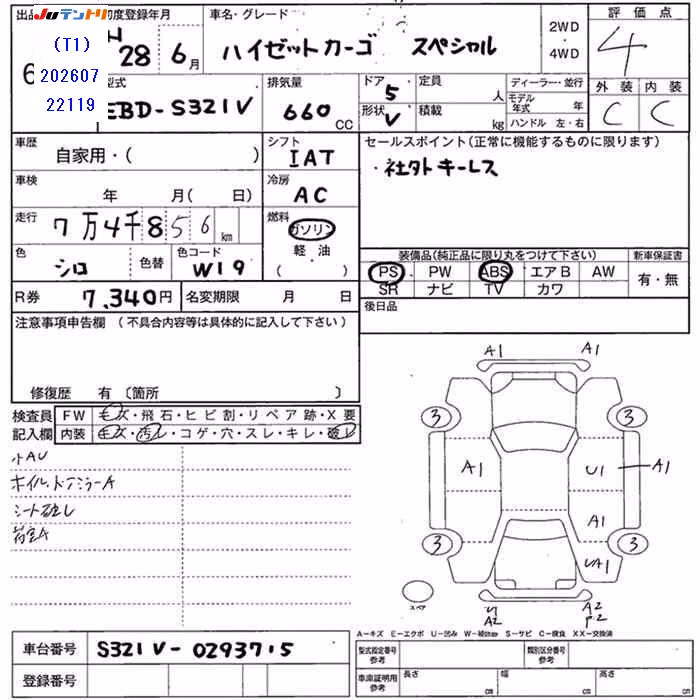 Juテントリ
(T1)
202607
22119
出品
初度登録年月
28年 6月
車名・グレード
ハイゼットカーゴ スペシャル
2WD
4WD
評価点
4
型式
EBD-S321V
排気量
660 CC
ドア 5
形状 V
定員 人
積載 kg
ディーラー・並行
モデル年式 年
ハンドル 左・右
外装 内装
C C
車歴
自家用・( )
シフト
IAT
セールスポイント(正常に機能するものに限ります)
・社外キーレス
車検
年 月( 日)
冷房
AC
走行
7万4千856km
燃料
ガソリン
軽・油
( )
色
シロ
色替
色コード
W19
装備品(純正品に限り丸をつけて下さい)
新車保証書
PS PW ABS エアB AW
SR ナビ TV カワ
有・無
R券
7,340円
名変期限 月 日
後日品
注意事項申告欄 (不具合内容等は具体的に記入して下さい)
修復歴 有〔箇所 〕
検査員
記入欄
FW 毛ズ・飛石・ヒビ割・リペア跡・X要
内装 毛ズ・汚レ・コゲ・穴・スレ・キレ・破レ
小AU
ホイル、ドアミラーA
シート破レ
荷室A
A1 A1
3 3
A1 U1 A1
A1
3 3
UA1
スペア
U A2
A2 P2
A-キズ E-エクボ U-凹み W-補修跡 S-サビ C-腐食 XX-交換済
車台番号
S321V-0293715
登録番号
型式指定番号
参考
類別区分番号
参考
車庫証明用
参考
長さ cm
幅 cm
高さ cm